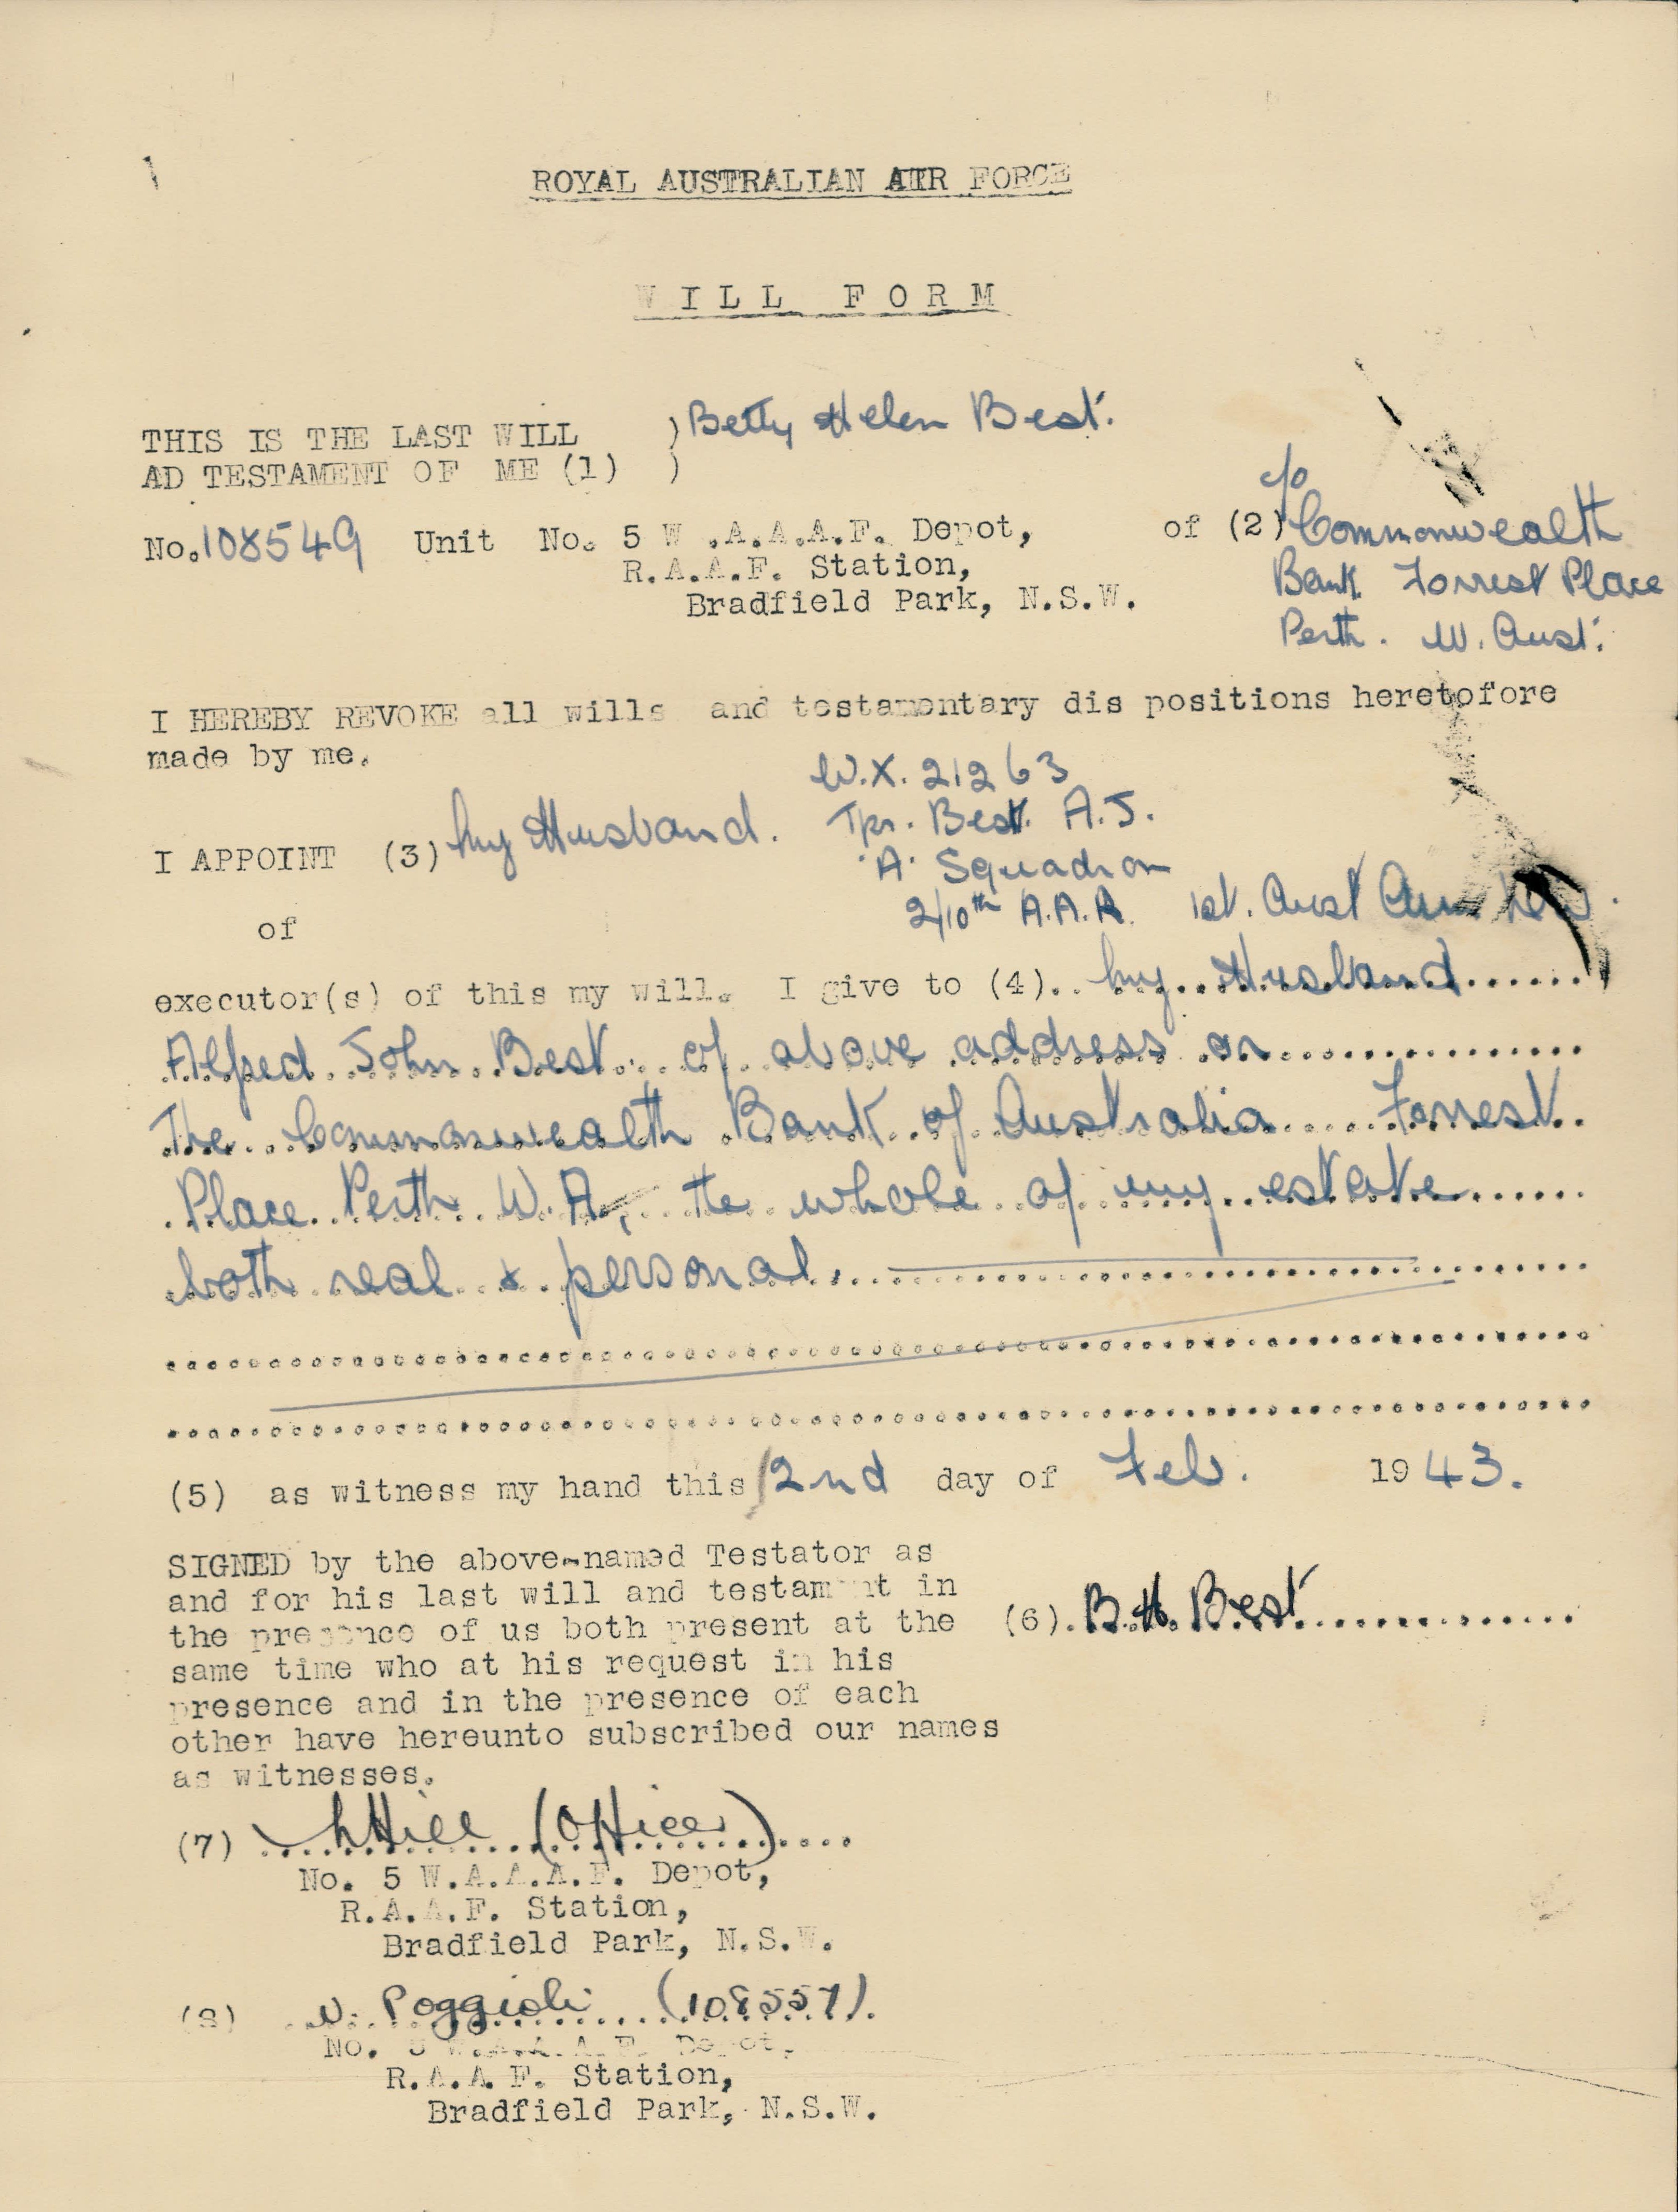 ROYAL AUSTRALIAN AIR FORCE
WILL FORM
THIS IS THE LAST WILL ) Betty Helen Best.
AD TESTAMENT OF ME (1) )
c/o
No. 108549 Unit No. 5 W.A.A.A.F. Depot, of (2) Commonwealth
R.A.A.F. Station, Bank Forrest Place
Bradfield Park, N.S.W. Perth. W. Aust.
I HEREBY REVOKE all wills and testamentary dis positions heretofore
made by me.
W.X. 21263
I APPOINT (3) My Husband. Tpr. Best. A.J.
'A' Squadron
of 2/10th A.A.R. 1st. Aust
executor(s) of this my will. I give to (4).. My Husband
Alfred John Best. of above address or
The Commonwealth Bank of Australia Forrest
Place Perth W.A, the whole of my estate
both real & personal.
(5) as witness my hand this 2nd day of Feb. 1943.
SIGNED by the above-named Testator as
and for his last will and testament in
the presence of us both present at the (6). B.H. Best
same time who at his request in his
presence and in the presence of each
other have hereunto subscribed our names
as witnesses.
(7) Hill (Officer)
No. 5 W.A.A.A.F. Depot,
R.A.A.F. Station,
Bradfield Park, N.S.W.
(8) Poggioli (108557).
No. 5 W.A.A.A.F. Depot,
R.A.A.F. Station,
Bradfield Park, N.S.W.